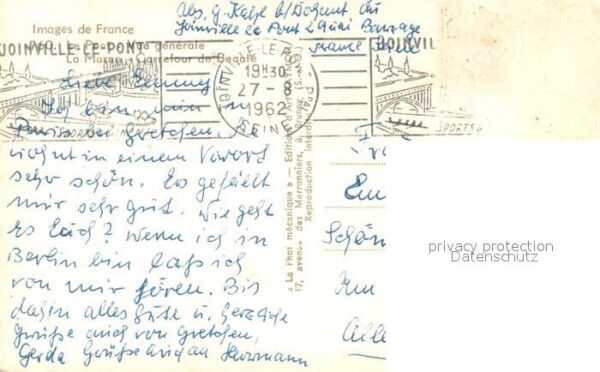 Images de France
générale
La Marne - Carrefour de Beauté
Abs. G. Katze b/Dolgent
Joinville le Pont 2 Quai
France Seine
JOINVILLE-LE-PONT
19H30
27-8
1962
SEINE
JOINVIL
SPORTS
Liebe Emmy!
Ich bin nun in
Paris bei Gretchen. Sie
wohnt in einem Vorort
sehr schön. Es gefällt
mir sehr gut. Wie geht
es Euch? Wenn ich in
Berlin bin laß ich
von mir hören. Bis
dahin alles Gute u. herzliche
Grüße auch von Gretchen,
Gerda Grüße auch an Herrmann
« La chat mécanique » — Editions d'Art
17, avenue des Marronniers, à Brunoy (S.-&-O.)
Reproduction interdite
Fr
Em
Schön
Am
Alle
privacy protection
Datenschutz